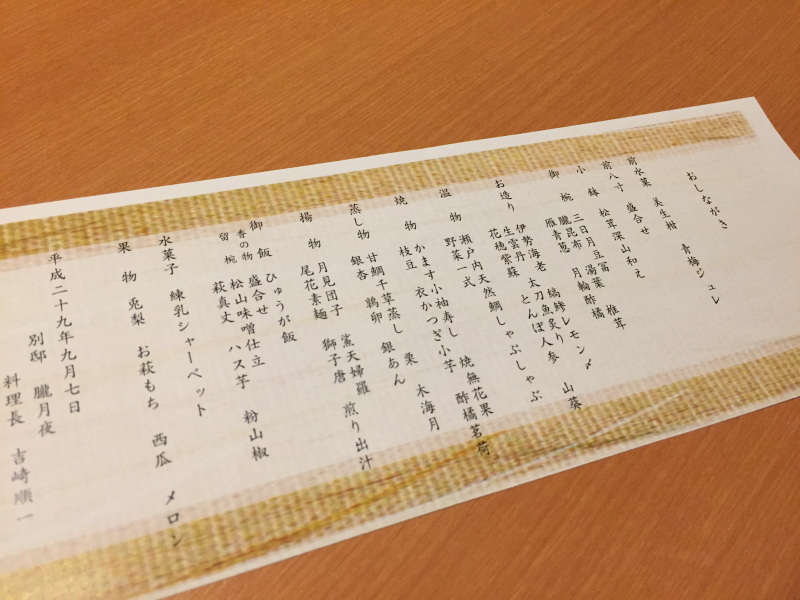 おしながき
前水菓 美生柑 青梅ジュレ
前八寸 盛合せ
小鉢 松茸深山和え 椎茸
御椀 三日月豆富 湯葉 月輪酢橘
朧昆布
雁青葱 縞鯵レモン〆 山葵
お造り 伊勢海老 太刀魚炙り
生雲丹 とんぼ人参
花穂紫蘇
温物 瀬戸内天然鯛しゃぶしゃぶ
野菜一式
焼物 かます小袖寿し 焼無花果
枝豆 衣かつぎ小芋 酢橘茗荷
蒸し物 甘鯛千草蒸し 栗 木海月
銀杏 鶉卵 銀あん
揚物 月見団子 鯊天婦羅 煎り出汁
尾花素麺 獅子唐
御飯 ひゅうが飯
香の物 盛合せ
留椀 松山味噌仕立 粉山椒
萩真丈 ハス芋
水菓子 練乳シャーベット
果物 兎梨 お萩もち 西瓜 メロン
平成二十九年九月七日
別邸 朧月夜
料理長 吉崎順一